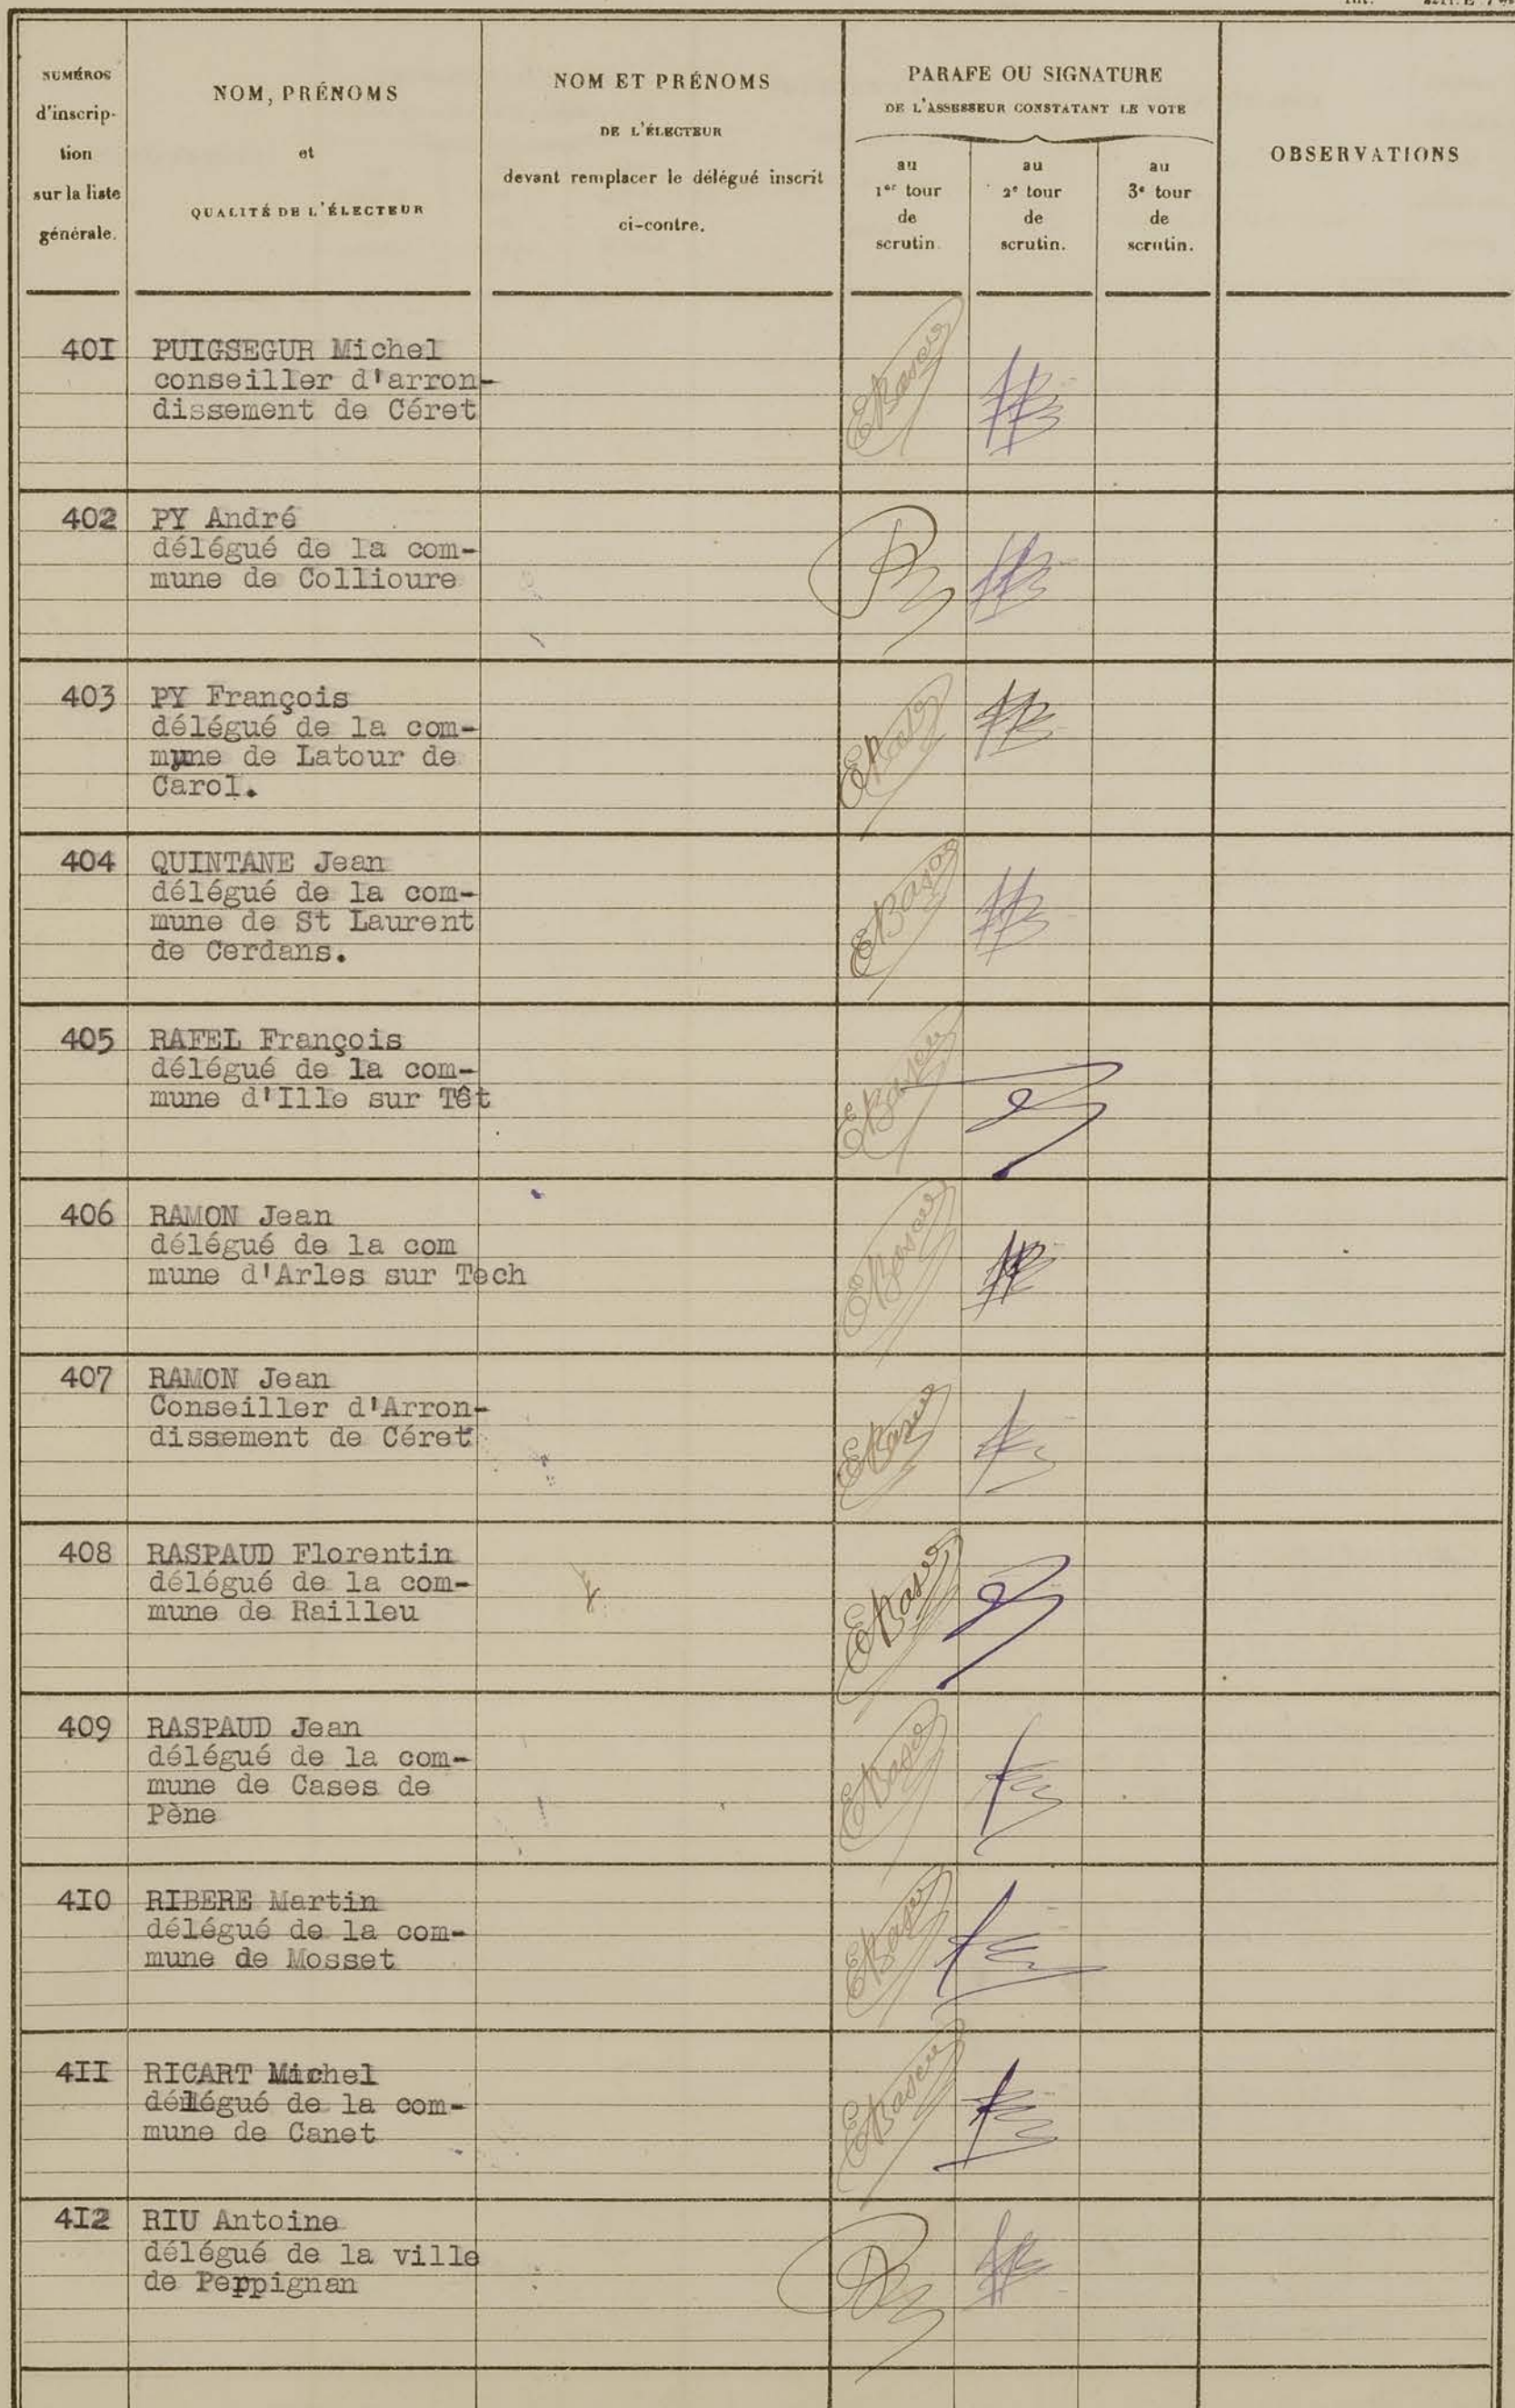 NUMÉROS
d'inscrip-
tion
sur la liste
générale.
NOM, PRÉNOMS
et
QUALITÉ DE L'ÉLECTEUR
NOM ET PRÉNOMS
DE L'ÉLECTEUR
devant remplacer le délégué inscrit
ci-contre.
PARAFE OU SIGNATURE
DE L'ASSESSEUR CONSTATANT LE VOTE
au
1er tour
de
scrutin.
au
2e tour
de
scrutin.
au
3e tour
de
scrutin.
OBSERVATIONS
40I PUIGSEGUR Michel
conseiller d'arron-
dissement de Céret
402 PY André
délégué de la com-
mune de Collioure
403 PY François
délégué de la com-
mune de Latour de
Carol.
404 QUINTANE Jean
délégué de la com-
mune de St Laurent
de Cerdans.
405 RAFEL François
délégué de la com-
mune d'Ille sur Têt
406 RAMON Jean
délégué de la com
mune d'Arles sur Tech
407 RAMON Jean
Conseiller d'Arron-
dissement de Céret
408 RASPAUD Florentin
délégué de la com-
mune de Railleu
409 RASPAUD Jean
délégué de la com-
mune de Cases de
Pène
4I0 RIBERE Martin
délégué de la com-
mune de Mosset
4II RICART Michel
délégué de la com-
mune de Canet
4I2 RIU Antoine
délégué de la ville
de Perpignan